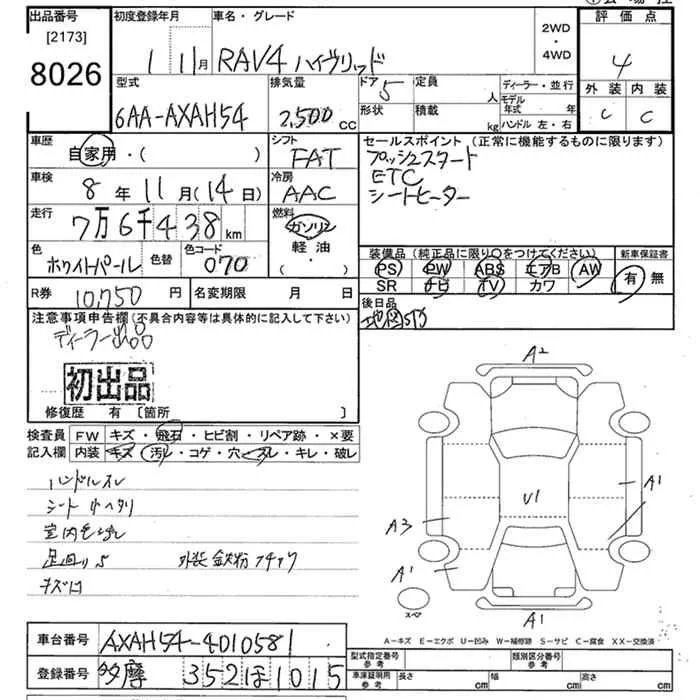 出品番号
[2173]
8026
初度登録年月
1 11月
車名・グレード
RAV4 ハイヴリッド
2WD
・
4WD
評価点
4
外装 内装
C C
型式
6AA-AXAH54
排気量
2,500 cc
ドア 5
形状
定員 人
積載 kg
ディーラー・並行
モデル年式 年
ハンドル 左・右
車歴
自家用・( )
シフト
FAT
車検
8年11月(14日)
冷房
AAC
走行
7万6千438km
燃料
ガソリン
軽油
( ・ )
色
ホワイトパール
色替
色コード
070
セールスポイント (正常に機能するものに限ります)
プッシュスタート
ETC
シートヒーター
装備品 (純正品に限り○をつけてください)
PS PW ABS エアB AW
SR ナビ TV カワ
新車保証書
有 無
R券 10,750円
名変期限 月 日
後日品
地図SD
注意事項申告欄(不具合内容等は具体的に記入して下さい)
ディーラー出品
初出品
修復歴 有 〔箇所 〕
検査員
記入欄
FW キズ・飛石・ヒビ割・リペア跡・×要
内装 キズ・汚レ・コゲ・穴・スレ・キレ・破レ
ハンドルスレ
シート
室内
足回り
外装鉄粉
キズ凹
A2
U1
A1
A3
A1
A1
スペア
A-キズ E-エクボ U-凹み W-補修跡 S-サビ C-腐食 XX-交換済
車台番号 AXAH54-4010581
登録番号 多摩 352 ほ 1015
型式指定番号 参考
類別区分番号 参考
車庫証明用 参考
長さ cm
幅 cm
高さ cm